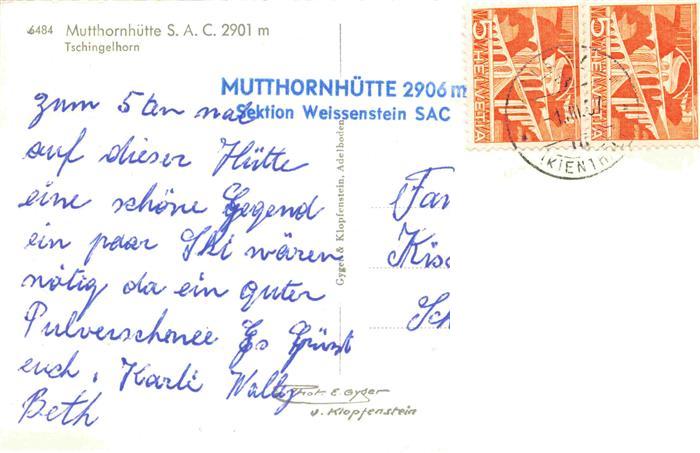 6484 Mutthornhütte S. A. C. 2901 m
Tschingelhorn
MUTTHORNHÜTTE 2906 m
Sektion Weissenstein SAC
zum 5ten mal
auf dieser Hütte
eine schöne Gegend
ein paar Ski wären
nötig da ein guter
Pulverschnee Es Grüsst
euch, Karli Walty
Beth
Gyger & Klopfenstein, Adelboden
Phot. E. Gyger
u. Klopfenstein
Fam
5 HELVETIA
5 HELVETIA
(KIENTH